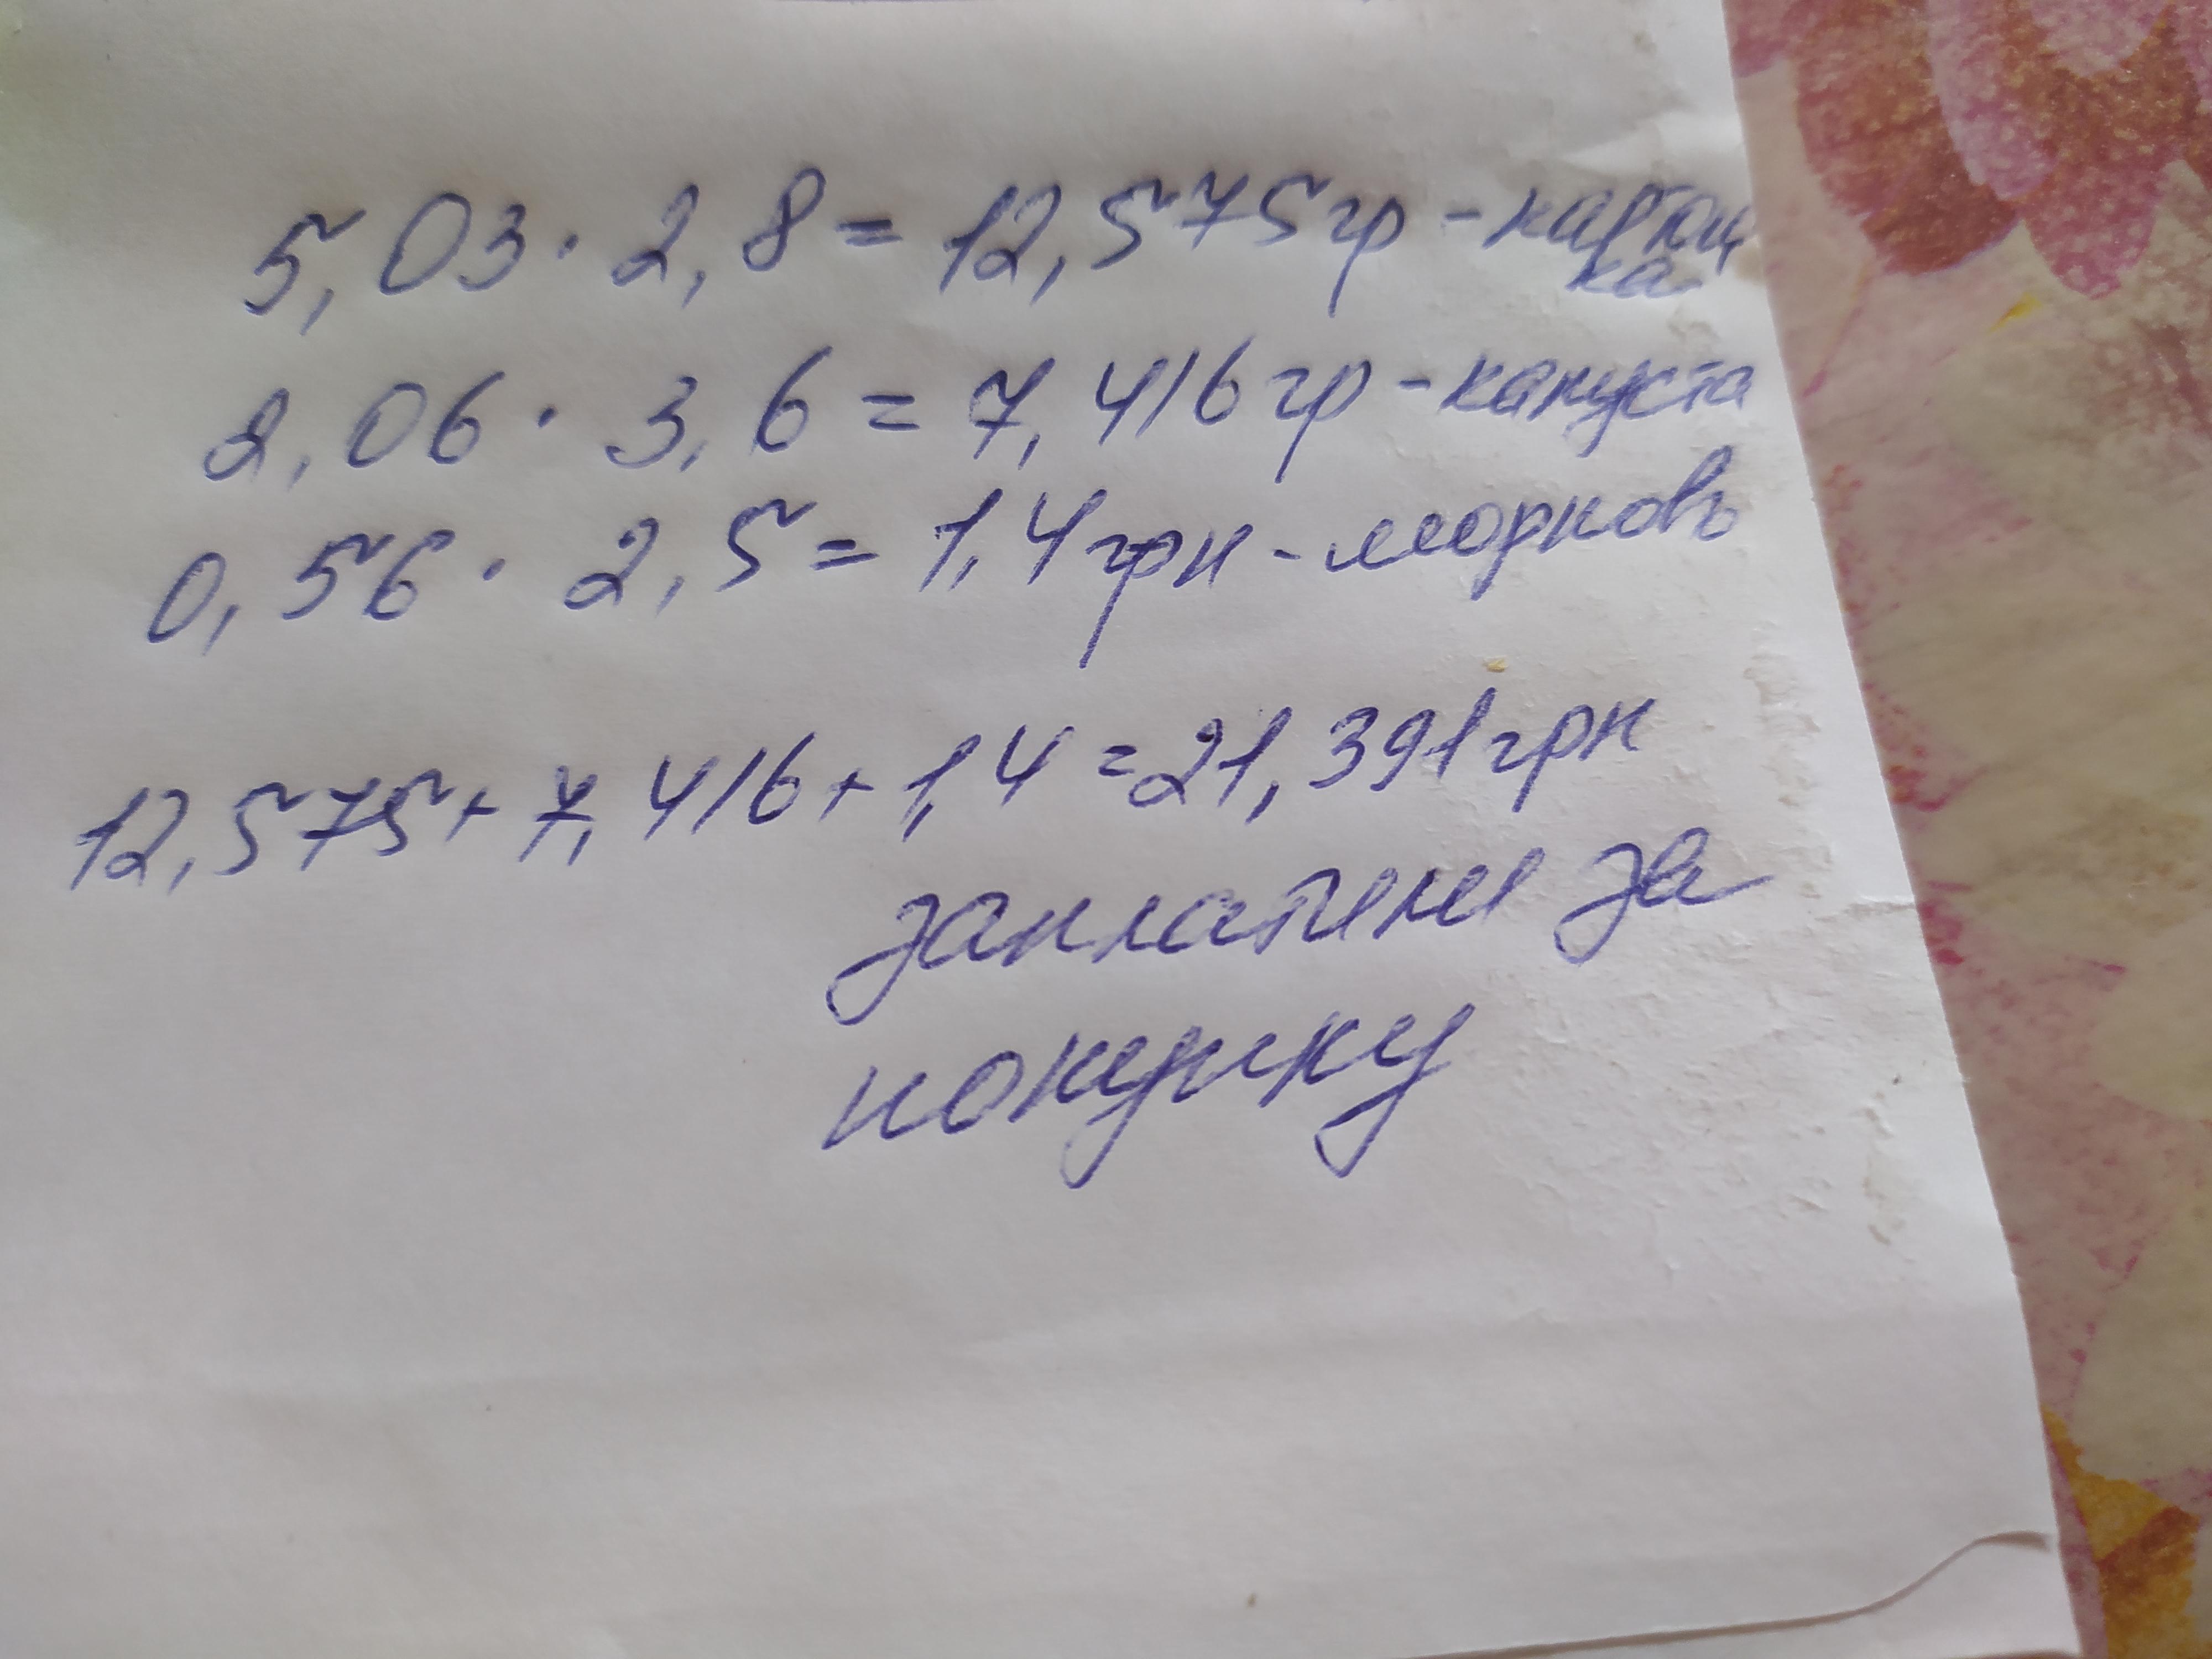 5,03 · 2,8 = 12,575 гр - картош
ка
2,06 · 3,6 = 7,416 гр - капуста
0,56 · 2,5 = 1,4 грн - морковь
12,575 + 7,416 + 1,4 = 21,391 грн
заплатили за
покупку